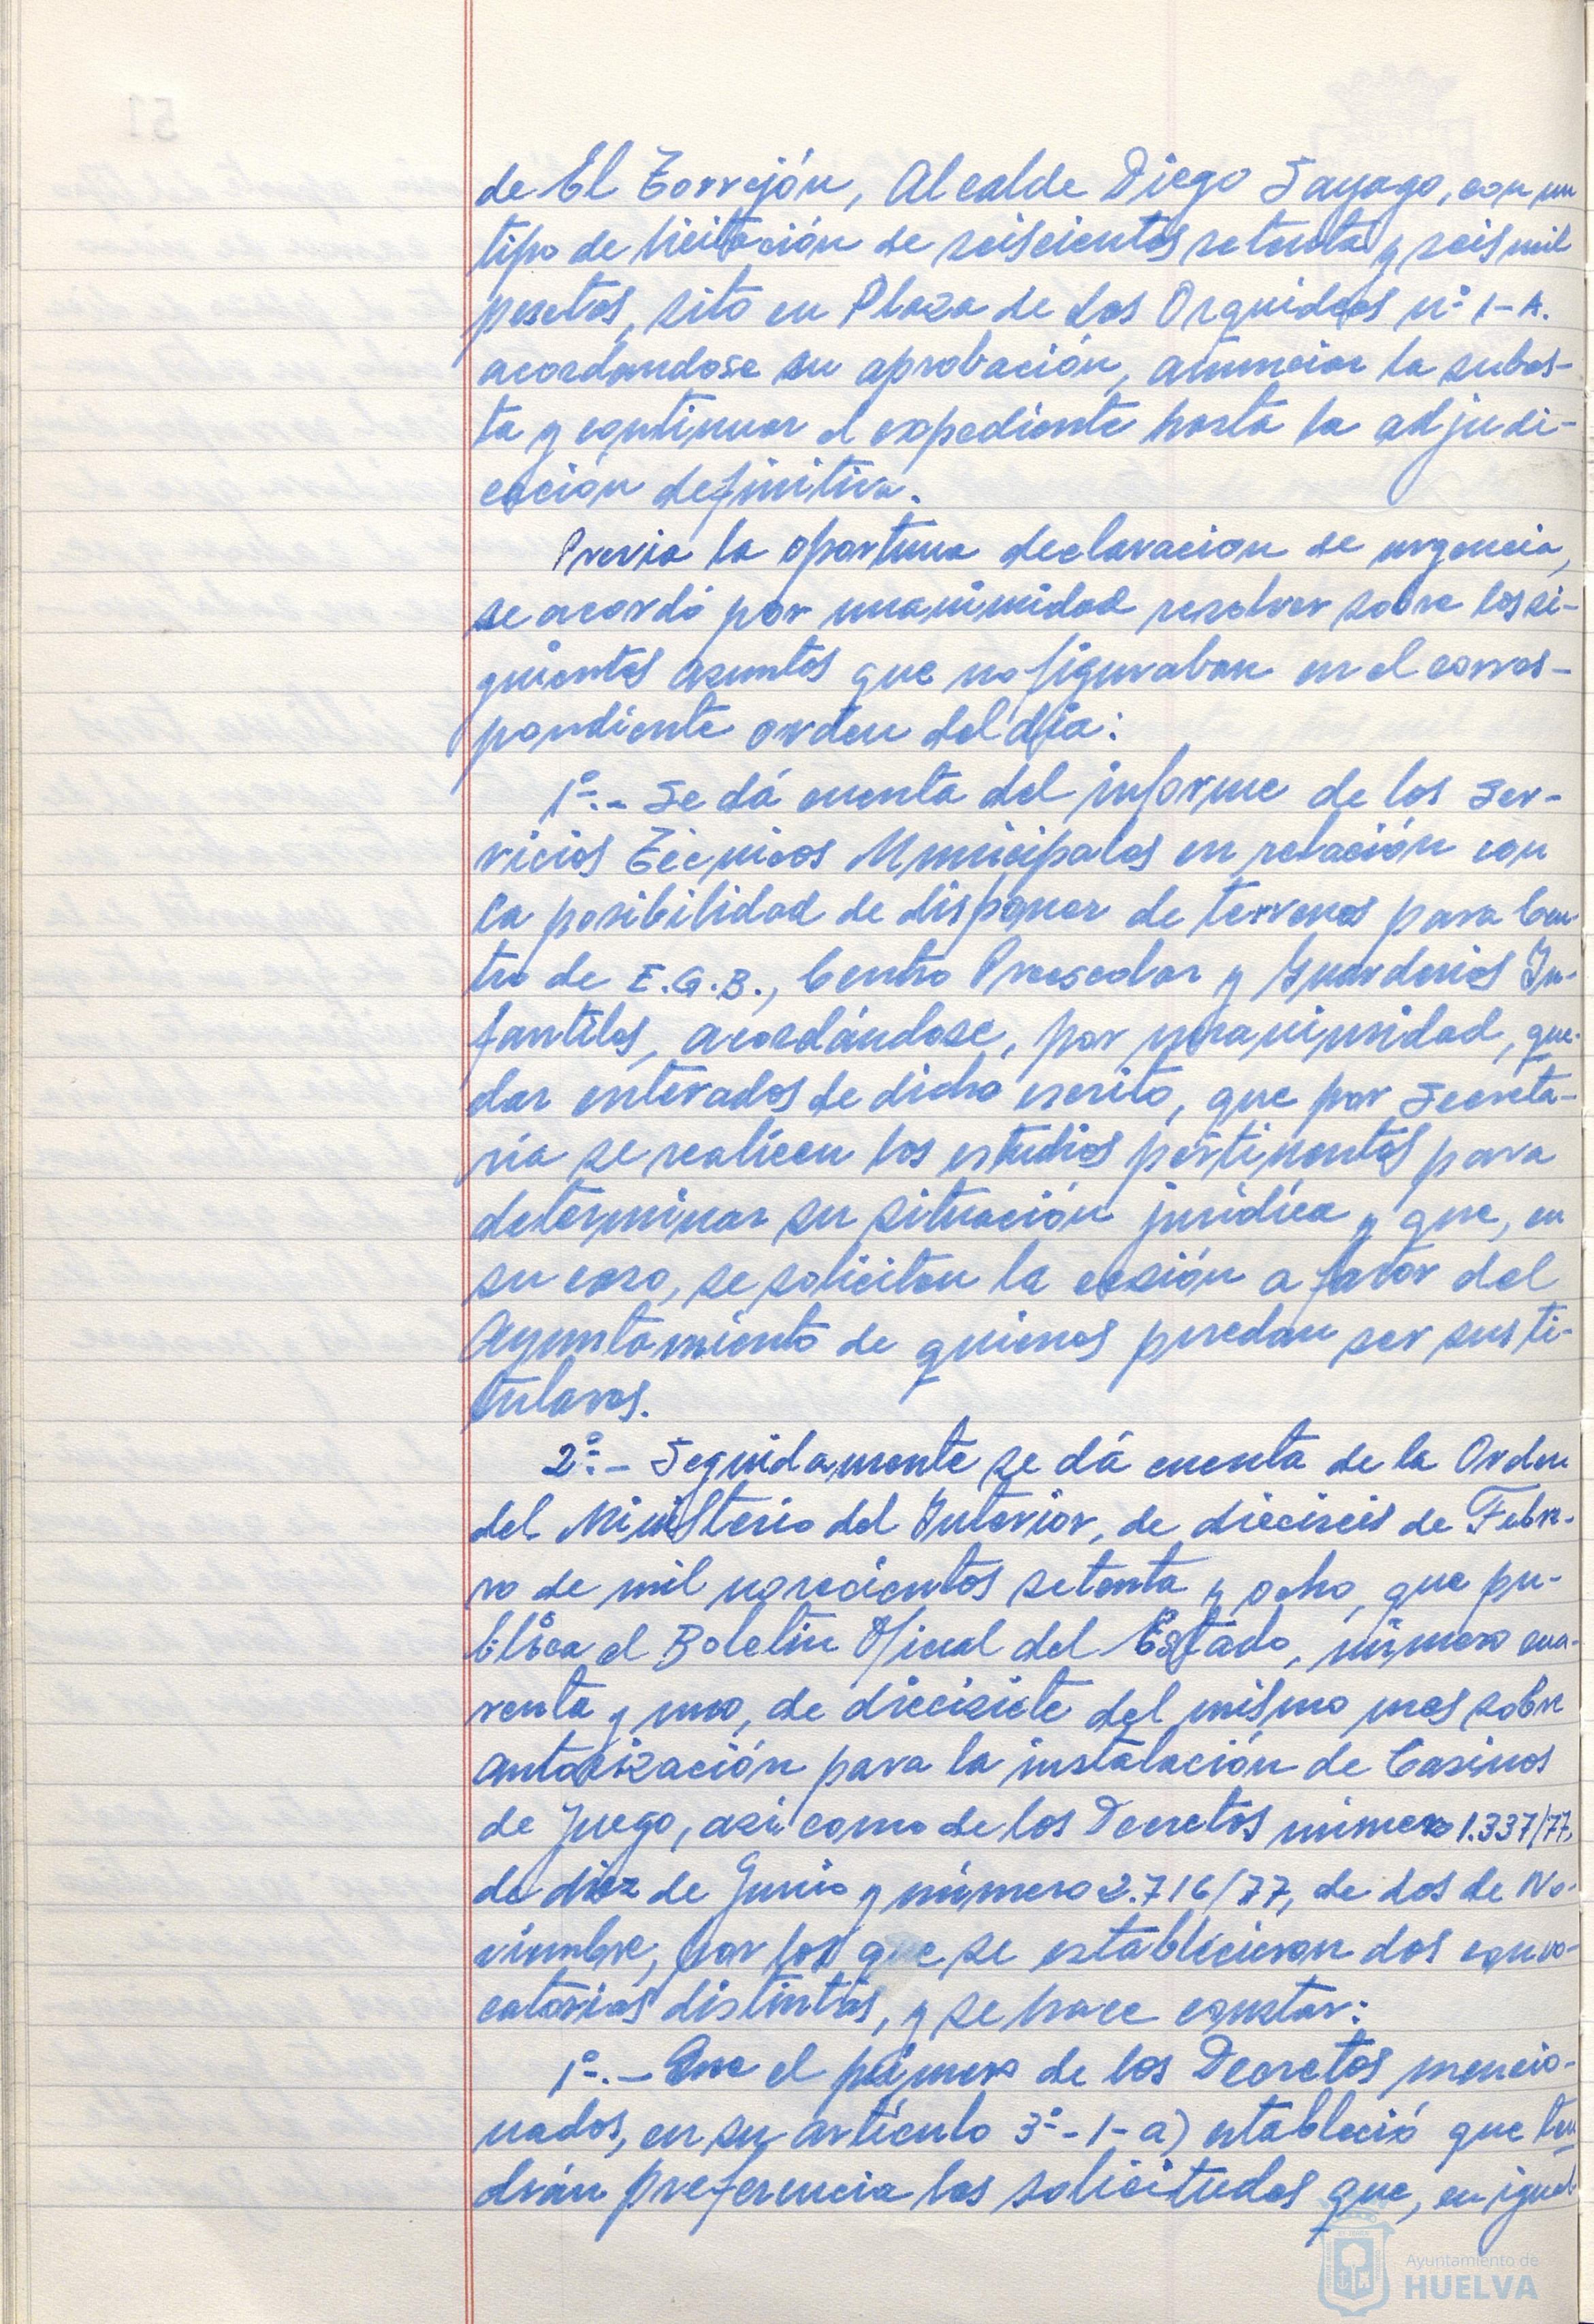 de El Torrejón, Alcalde Diego Sayago, con un
tipo de licitación de seiscientos setenta y seis mil
pesetas, sito en Plaza de las Orquideas nº 1-A.
acordandose su aprobación, anunciar la subas-
ta y continuar el expediente hasta la adjudi-
cación definitiva.
Previa la oportuna declaracion de urgencia,
se acordó por unanimidad resolver sobre los si-
guientes asuntos que no figuraban en el corres-
pondiente orden del día:
1º.- Se dá cuenta del informe de los Ser-
vicios Técnicos Municipales en relación con
la posibilidad de disponer de terrenos para Cen-
tro de E.G.B., Centro Preescolar y Guarderias In-
fantiles, acordándose, por unanimidad, que-
dar enterados de dicho escrito, que por Secreta-
ría se realicen los estudios pertinentes para
determinar su situación jurídica y que, en
su caso, se soliciten la cesión a favor del
Ayuntamiento de quienes puedan ser sus ti-
tulares.
2º.- Seguidamente se dá cuenta de la Orden
del Ministerio del Interior, de dieciseis de Febre-
ro de mil novecientos setenta y ocho, que pu-
blica el Boletín Oficial del Estado, número cua-
renta y uno, de diecisiete del mismo mes sobre
autorización para la instalación de Casinos
de Juego, asi como de los Decretos número 1.337/77,
de diez de Junio y número 2.716/77, de dos de No-
viembre, por los que se establecieron dos convo-
catorias distintas, y se hace constar:
1º.- Que el primero de los Decretos mencio-
nados, en su artículo 3º-1-a) estableció que ten-
drán preferencia las solicitudes que, en igual-
Ayuntamiento de
HUELVA